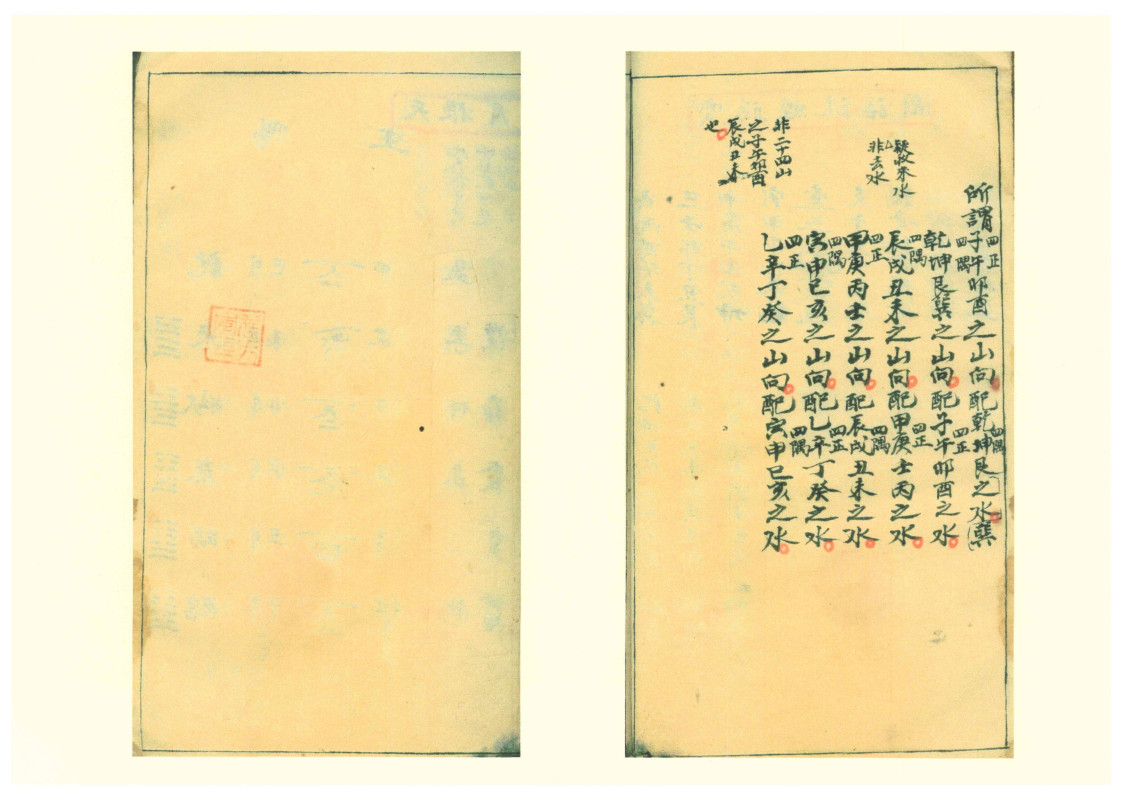 所謂子午卯酉之山向配乾坤艮之水巽
四正
四隅
乾坤艮巽之山向配子午卯酉之水
四隅
四正
辰戌丑未之山向配甲庚壬丙之水
四隅
四正
甲庚丙壬之山向配辰戌丑未之水
四正
四隅
寅申巳亥之山向配乙辛丁癸之水
四隅
四正
乙辛丁癸之山向配寅申巳亥之水
四正
四隅
疑收來水
非去水
非二十四山
之子午卯酉
辰戌丑未
也